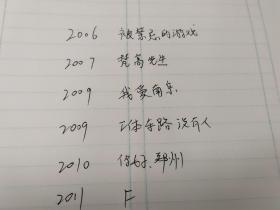 2006 被禁忌的游戏
2007 梵高先生
2009 我爱南京
2009 工体东路没有人
2010 你好,郑州
2011 F